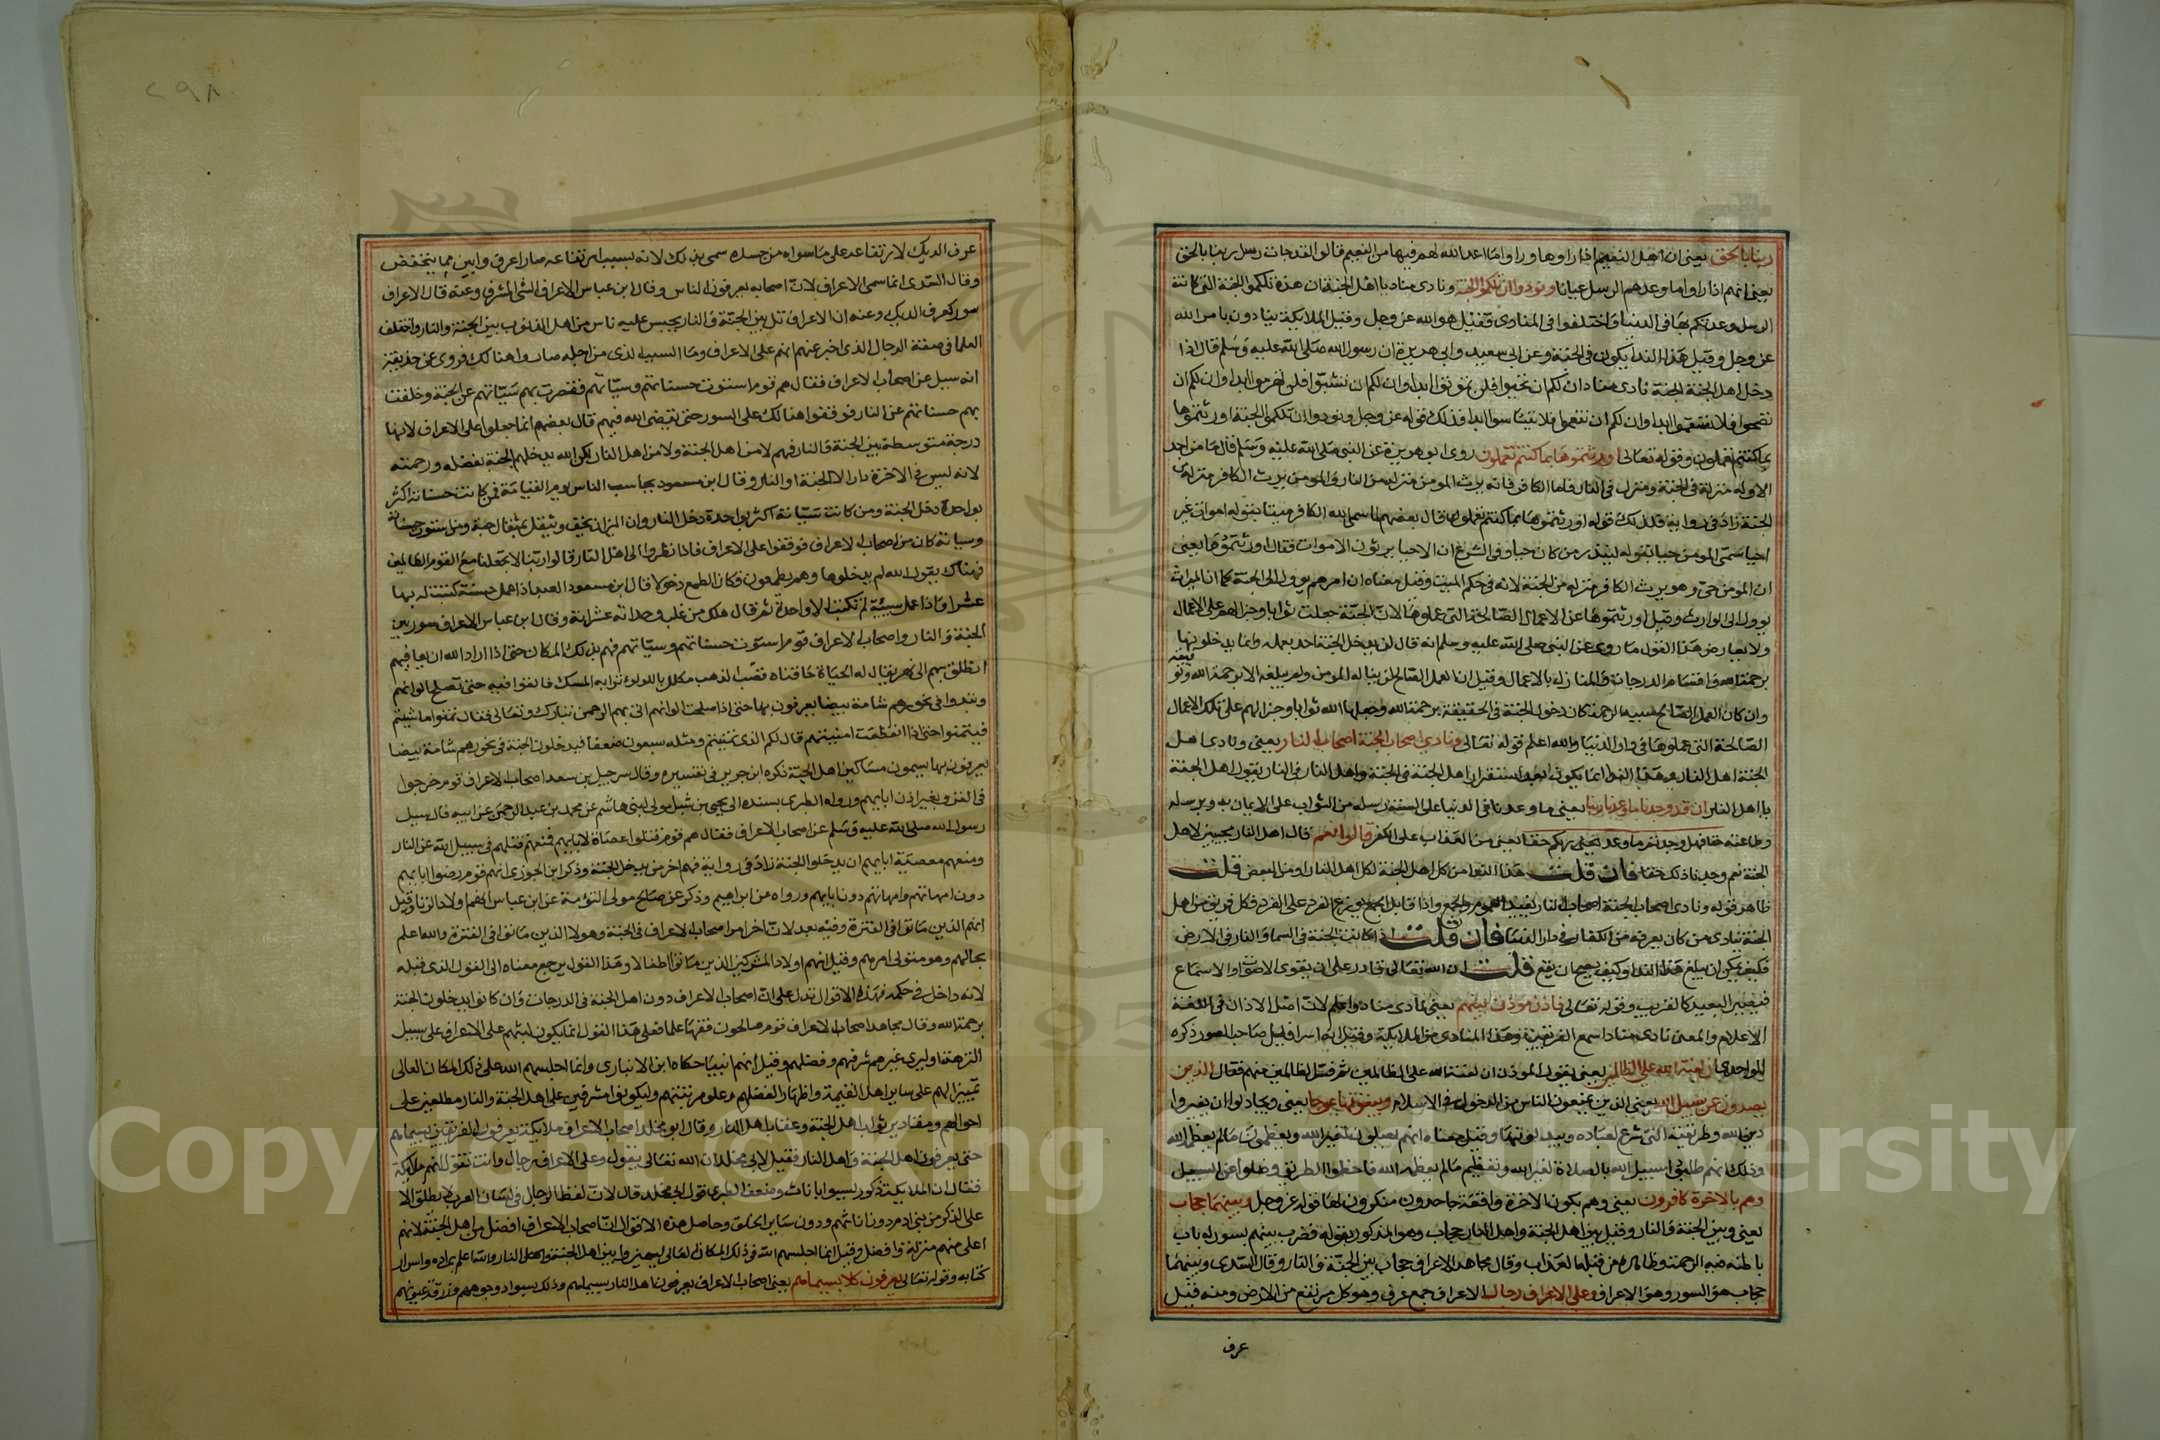 ربنا بالحق يعني ان اهل النعيم اذا راوها وراوا ما اعد الله لهم فيها من النعيم قالوا لقد جات رسل ربنا بالحق
يعني انهم اذا راوا ما وعدهم الرسل عيانا ونودوا ان تلكم الجنة ونادى مناد يا اهل الجنة ان هذه تلكم الجنة التي كانت
الرسل وعدتكم بها في الدنيا واختلفوا في المنادى فقيل هو الله عز وجل وقيل الملايكة ينادون بامر الله
عز وجل وقيل هذا الندا يكون في الجنة وعن ابي سعيد وابي هريرة ان رسول الله صلى الله عليه وسلم قال اذا
دخل اهل الجنة الجنة نادى مناد ان لكم ان تحيوا فلن تموتوا ابدا وان لكم ان تشبوا فلن تهرموا ابدا وان لكم ان
تصحوا فلا تسقموا ابدا وان لكم ان تنعموا فلا تبتاسوا ابدا فذلك قوله عز وجل ونودوا ان تلكم الجنة اورثتموها
بما كنتم تعملون وقوله تعالى اورثتموها بما كنتم تعملون روى ابو هريرة عن النبي صلى الله عليه وسلم قال ما من احد
الا وله منزلة في الجنة ومنزل في النار فاما الكافر فانه يرث المومن منزله من النار والمومن يرث الكافر منزله من
الجنة زاد في رواية فذلك قوله اورثتموها بما كنتم تعملون قال بعضهم لما سمى الله الكافر ميتا بقوله اموات غير
احيا سمى المومن حيا بقوله لينذر من كان حيا وفي الشرع ان الاحيا يرثون الاموات فقال اورثتموها يعني
ان المومن حي وهو يرث الكافر منزله من الجنة لانه في حكم الميت وقيل معناه ان امرهم يوول الى الجنة كما ان الميراث
يوول الى الوارث وقيل اورثتموها عن الاعمال الصالحة التي عملوها لان الجنة جعلت ثوابا وجزا لهم على الاعمال
ولا يعارض هذا القول ما روي عن النبي صلى الله عليه وسلم انه قال لن يدخل الجنة احد بعمله وانما يدخلونها
برحمة الله وانقسام الدرجات والمنازل بالاعمال وقيل ان العمل الصالح لن يناله المومن ولم يبلغه الا برحمة الله وتوفيقه
وان كان العمل الصالح بسبب الرحمة كان دخول الجنة في الحقيقة برحمة الله وجعلها الله ثوابا وجزا لهم على تلك الاعمال
الصالحة التي عملوها في دار الدنيا والله اعلم قوله تعالى ونادى اصحاب الجنة اصحاب النار يعني ونادى اهل
الجنة اهل النار وهذا الندا انما يكون بعد استقرار اهل الجنة في الجنة واهل النار في النار يقول اهل الجنة
يا اهل النار ان قد وجدنا ما وعدنا ربنا يعني ما وعدنا في الدنيا على السنة رسله من الثواب على الايمان به وبرسله
وطاعته حقا فهل وجدتم ما وعد ربكم حقا يعني من العذاب على الكفر قالوا نعم قال اهل النار مجيبين لاهل
الجنة نعم وجدنا ذلك حقا فان قلت هذا الندا من كل اهل الجنة لكل اهل النار او من البعض قلت
ظاهر قوله ونادى اصحاب الجنة اصحاب النار يفيد العموم والجمع واذا قابل الجمع يوزع الفرد على الفرد فكل فريق من اهل
الجنة ينادى من كان يعرفه من الكفار في دار الدنيا فان قلت اذا كانت الجنة في السما والنار في الارض
فكيف يمكن ان يبلغ هذا الندا وكيف يصح ان يقع قلت ان الله تعالى قادر على ان يقوى الاصوات والاسماع
فيصير البعيد كالقريب وقوله تعالى فاذن موذن بينهم يعني نادى مناد واعلم لان اصل الاذان في اللغة
الاعلام والمعنى نادى مناد اسمع الفريقين وهذا المنادى من الملايكة وقيل انه اسرافيل صاحب الصور ذكره
الواحدي ان لعنة الله على الظالمين يعني يقول الموذن ان لعنة الله على الظالمين ثم فسر الظالمين منهم فقال الذين
يصدون عن سبيل الله يعني الذين يمنعون الناس من الدخول في الاسلام ويبغونها عوجا يعني ويحاولوا ان يغيروا
دين الله وطريقته التي شرع لعباده ويبدلونها وقيل معناه انهم يصلون لغير الله ويعظمون ما لم يعظم الله
وذلك انهم طلبوا سبيل الله بالصلاة لغير الله وتعظيم ما لم يعظمه الله فاخطاوا الطريق وضلوا عن السبيل
وهم بالاخرة كافرون يعني وهم بكون الاخرة واقعة جاحدون منكرون لها قوله عز وجل وبينهما حجاب
يعني وبين الجنة والنار وقيل بين اهل الجنة واهل النار حجاب وهو المذكور بقوله فضرب بينهم بسور له باب
باطنه فيه الرحمة وظاهره من قبله العذاب وقال مجاهد الاعراف حجاب بين الجنة والنار وقال السدى وبينهما
حجاب هو السور وهو الاعراف وعلى الاعراف رجال الاعراف جمع عرف وهو كل مرتفع من الارض ومنه قيل
عرف
٢٩٨
عرف الديك لارتفاعه على ما سواه من جسده سمى بذلك لانه بسبب ارتفاعه صار اعرف وابين مما ينخفض
وقال السدى انما سمى الاعراف لان اصحابه يعرفون الناس وقال ابن عباس الاعراف الشى المشرف وعنه قال الاعراف
سور كعرف الديك وعنه ان الاعراف تل بين الجنة والنار يحبس عليه ناس من اهل الذنوب بين الجنة والنار واختلف
العلما في صفة الرجال الذى اخبر عنهم انهم على الاعراف وما السبب الذى من اجله صاروا هنالك فروى عن حذيفة
انه سيل عن اصحاب الاعراف فقال هم قوم استوت حسناتهم وسياتهم فقصرت بهم سياتهم عن الجنة وخلفت
بهم حسناتهم عن النار فوقفوا هنالك على السور حتى يقضى الله فيهم قال بعضهم انما جعلوا على الاعراف لانها
درجة متوسطة بين الجنة والنار فهم لا من اهل الجنة ولا من اهل النار لكن الله يدخلهم الجنة بفضله ورحمته
لانه ليس في الاخرة دار الا الجنة او النار وقال ابن مسعود يحاسب الناس يوم القيامة فمن كانت حسناته اكثر
بواحدة دخل الجنة ومن كانت سياته اكثر بواحدة دخل النار وان الميزان يخف ويثقل بمثقال حبة ومن استوت حسناته
وسياته كان من اصحاب الاعراف فوقفوا على الاعراف فاذا نظروا الى اهل النار قالوا ربنا لا تجعلنا مع القوم الظالمين
فهناك يقول الله لم يدخلوها وهم يطمعون فكان الطمع دخولا قال ابن مسعود العبد اذا عمل حسنة كتبت له بها
عشر واذا عمل سيئة لم تكتب الا واحدة ثم قال هلك من غلب وحدانه عشراته وقال ابن عباس الاعراف سور بين
الجنة والنار واصحاب الاعراف قوم استوت حسناتهم وسياتهم فهم بذلك المكان حتى اذا اراد الله ان يعافيهم
انطلق بهم الى نهر يقال له الحياة حافتاه قصب الذهب مكلل باللولو ترابه المسك فالقوا فيه حتى تصلح الوانهم
وتبدوا في نحورهم شامة بيضا يعرفون بها حتى اذا صلحت الوانهم اتى بهم الرحمن تبارك وتعالى فقال تمنوا ما شيتم
فيتمنوا حتى اذا انقطعت امنيتهم قال لكم الذى تمنيتم ومثله سبعون ضعفا فيدخلون الجنة في نحورهم شامة بيضا
يعرفون بها يسمون مساكين اهل الجنة ذكره ابن جرير في تفسيره وقال شرحبيل بن سعد اصحاب الاعراف قوم خرجوا
في الغزو بغير اذن ابايهم ورواه الطبرى بسنده الى يحيى بن شبل مولى لبنى هاشم عن محمد بن عبد الرحمن عن ابيه قال سيل
رسول الله صلى الله عليه وسلم عن اصحاب الاعراف فقال هم قوم قتلوا عصاة لابايهم فمنعهم قتلهم في سبيل الله عن النار
ومنعهم معصية ابايهم ان يدخلوا الجنة زاد في رواية فهم اخر من يدخل الجنة وذكر ابن الجوزى انهم قوم رضوا ابايهم
دون امهاتهم وامهاتهم دون ابايهم ورواه عن ابراهيم وذكر عن صالح مولى التوءمة عن ابن عباس انهم اولاد الزنا وقيل
انهم الذين ماتوا في الفترة وفيه بعد لان اخر امر اصحاب الاعراف في الجنة وهولا الذين ماتوا في الفترة والله اعلم
بحالهم وهو متولى امرهم وقيل انهم اولاد المشركين الذين ماتوا اطفالا وهذا القول يرجع معناه الى القول الذى قبله
لانه داخل في حكمه فهذه الاقوال تدل على ان اصحاب الاعراف دون اهل الجنة في الدرجات وان كانوا يدخلون الجنة
برحمة الله وقال مجاهد اصحاب الاعراف قوم صالحون فقها علما فعلى هذا القول انما يكون لبثهم على الاعراف على سبيل
النزهة او ليرى غيرهم شرفهم وفضلهم وقيل انهم انبيا حكاه ابن الانبارى وانما اجلسهم الله على ذلك المكان العالى
تمييزا لهم على ساير اهل القيمة واظهارا لفضلهم وعلو مرتبتهم وليكونوا مشرفين على اهل الجنة والنار مطلعين على
احوالهم ومقادير ثواب اهل الجنة وعقاب اهل النار وقال ابو مجلز اصحاب الاعراف ملايكة يعرفون الفريقين بسيماهم
حتى يعرفون اهل الجنة واهل النار فقيل لابى مجلز ان الله تعالى يقول وعلى الاعراف رجال وانت تقول انهم ملايكة
فقال ان الملايكة ذكور ليسوا باناث وضعف الطبرى قول ابى مجلز قال لان لفظ الرجال في لسان العرب لا يطلق الا
على الذكر من بنى ادم دون اناثهم ودون ساير الخلق وحاصل هذه الاقوال ان اصحاب الاعراف افضل من اهل الجنة لانهم
اعلى منهم منزلة وافضل وقيل انما اجلسهم الله في ذلك المكان العالى ليميزوا بين اهل الجنة واهل النار والله اعلم بمراده واسرار
كتابه وقوله تعالى يعرفون كلا بسيماهم يعنى اصحاب الاعراف يعرفون اهل النار بسيماهم وذلك بسواد وجوههم وزرقة عيونهم
Copyright © King Saud University